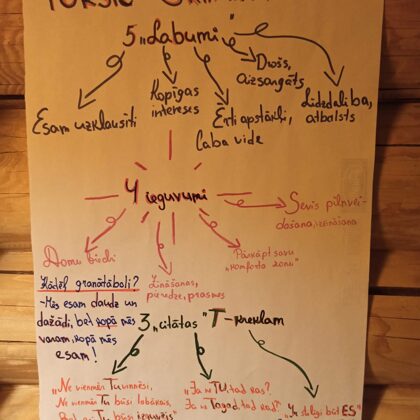 5 „Labumi"
Drošs,
aizsargāts
Kopīgas
intereses
Līdzdalība,
atbalsts
Esam uzklausīti
Ērti apstākļi,
Laba vide
4 ieguvumi
Sevis pilnvei-
došana, izzināšana
Domu biedri
Pārkāpt savu
„komforta zonu"
Zināšanas,
pieredze, prasmes
Kādēļ granātāboli?
-Mēs esam daudz un
dažādi, bet kopā mēs
varam, kopā mēs
esam!
3 „citātas" T-krekliem
„Ne vienmēr Tu vinnēsi,
Ne vienmēr Tu būsi labākais,
Tu būsi
„Ja ne TU, tad kas?
Ja ne Tagad, tad kad?"
būt ES"